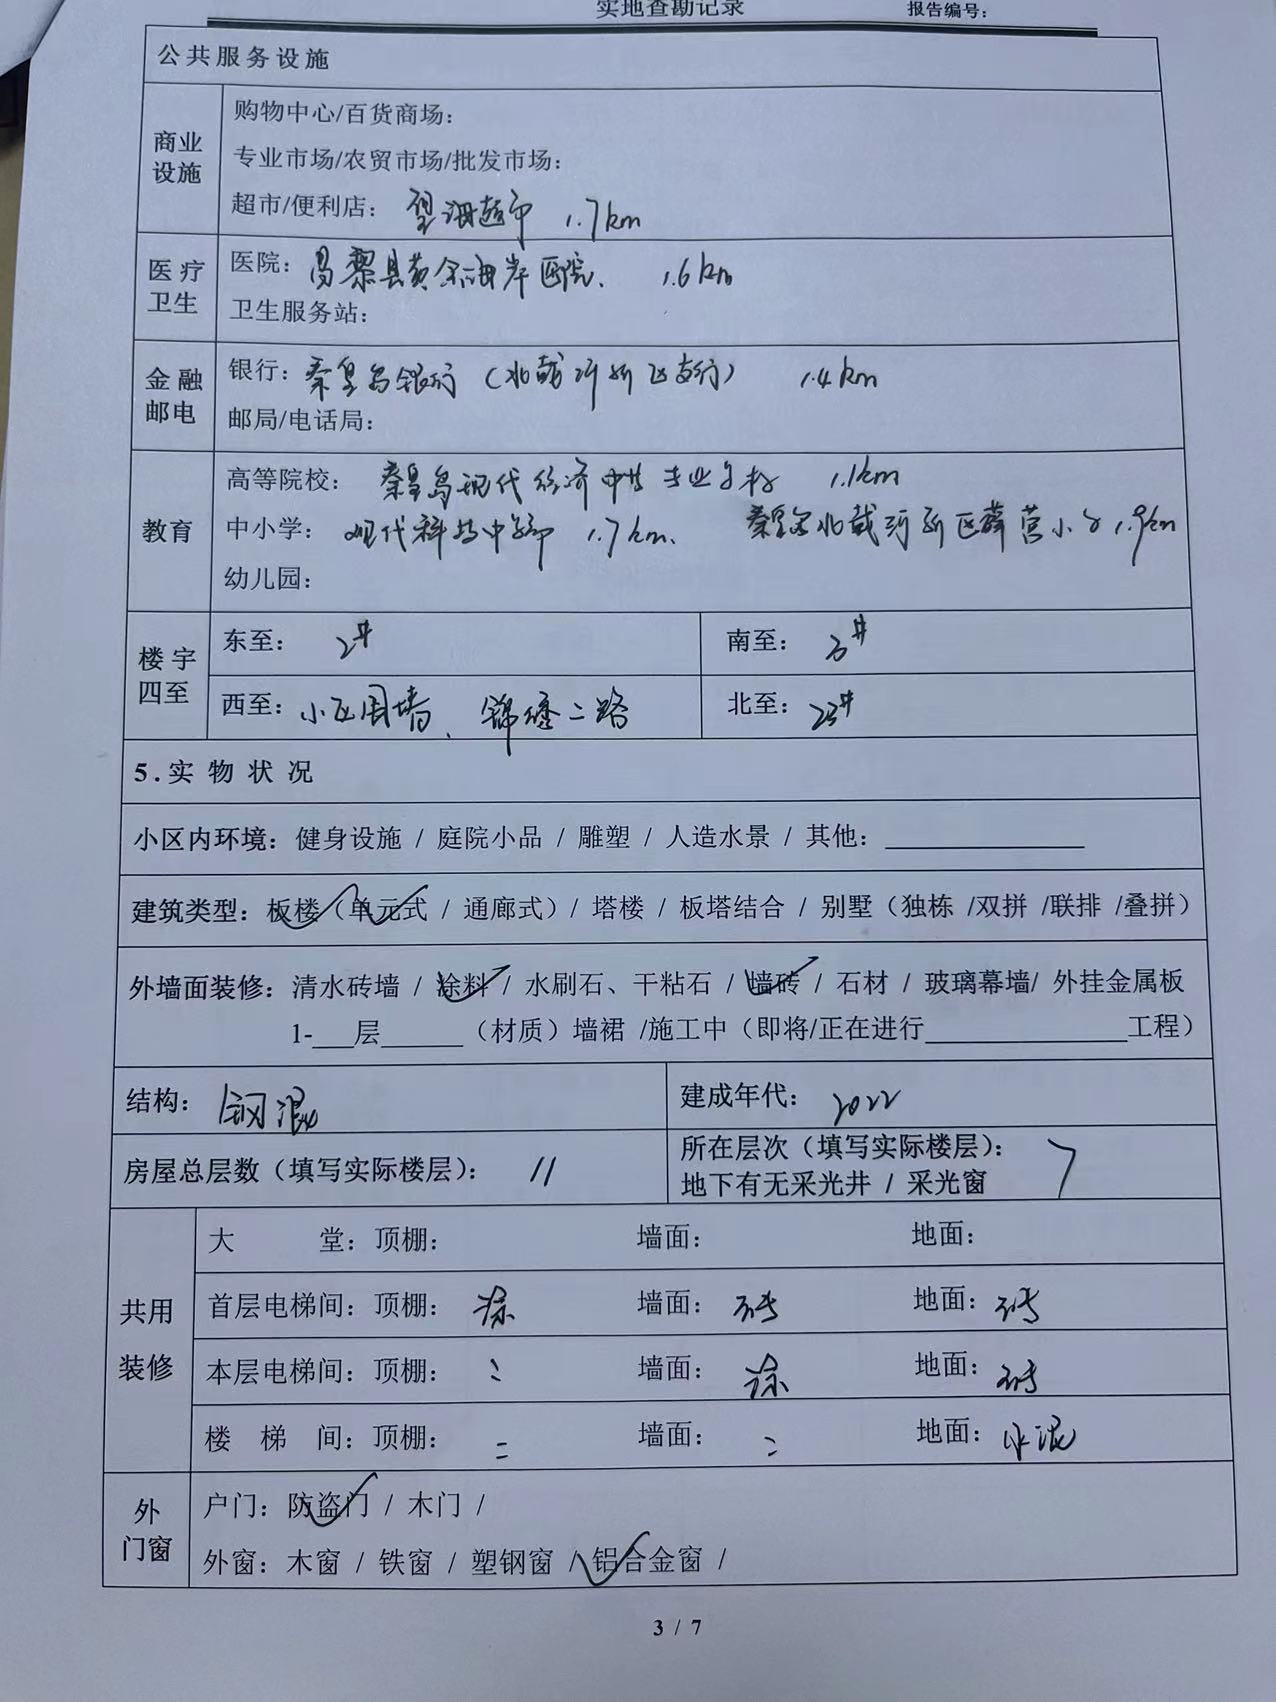 实地查勘记录 报告编号：
公共服务设施
商业设施
购物中心/百货商场：
专业市场/农贸市场/批发市场：
超市/便利店： 望海超市 1.7km
医疗卫生
医院：昌黎县黄金海岸医院、 1.6km
卫生服务站：
金融邮电
银行：秦皇岛银行（北戴河新区支行） 1.4km
邮局/电话局：
教育
高等院校： 秦皇岛现代经济中等专业学校 1.1km
中小学： 现代科技中学部 1.7km、 秦皇岛北戴河新区薛营小学 1.9km
幼儿园：
楼宇四至
东至： 2# 南至： 3#
西至：小区围墙、 二路 北至： 23#
5.实物状况
小区内环境：健身设施 / 庭院小品 / 雕塑 / 人造水景 / 其他：
建筑类型：板楼（单元式 / 通廊式）/ 塔楼 / 板塔结合 / 别墅（独栋 /双拼 /联排 /叠拼）
外墙面装修：清水砖墙 / 涂料 / 水刷石、干粘石 / 墙砖 / 石材 / 玻璃幕墙/ 外挂金属板
1-___层______（材质）墙裙 /施工中（即将/正在进行_______________工程）
结构： 钢混 建成年代： 2022
房屋总层数（填写实际楼层）： 11 所在层次（填写实际楼层）： 7
地下有无采光井 / 采光窗
共用装修
大 堂：顶棚： 墙面： 地面：
首层电梯间：顶棚： 涂 墙面： 砖 地面： 砖
本层电梯间：顶棚： 〃 墙面： 涂 地面： 砖
楼 梯 间：顶棚： 〃 墙面： 〃 地面： 水泥
外门窗
户门：防盗门 / 木门 /
外窗：木窗 / 铁窗 / 塑钢窗 / 铝合金窗 /
3 / 7